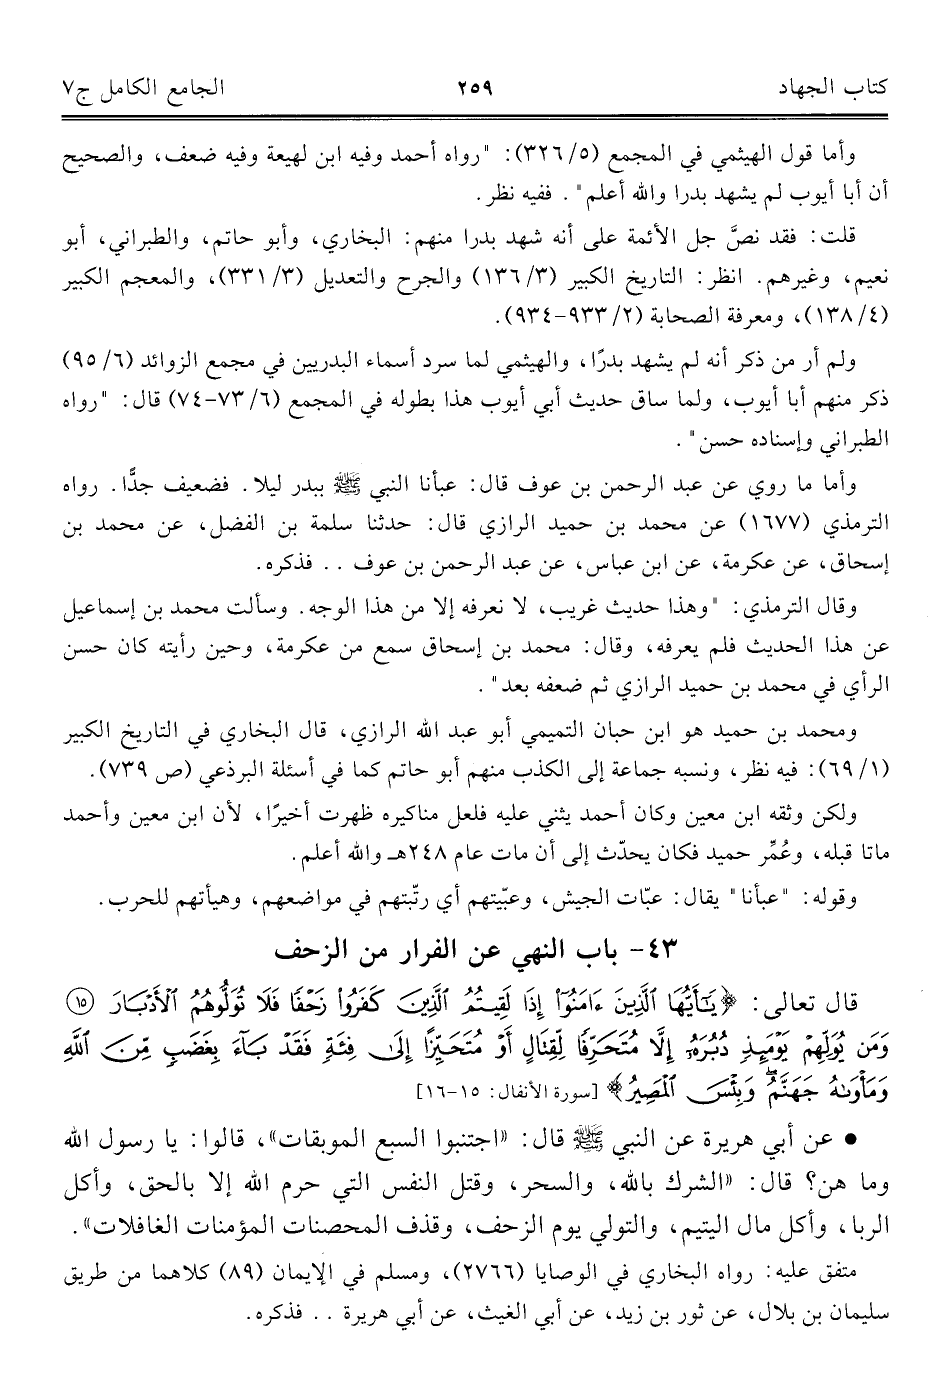 كتاب الجهاد ٢٥٩ الجامع الكامل ج٧
وأما قول الهيثمي في المجمع (٥/ ٣٢٦): "رواه أحمد وفيه ابن لهيعة وفيه ضعف، والصحيح
أن أبا أيوب لم يشهد بدرا والله أعلم". ففيه نظر.
قلت: فقد نصَّ جل الأئمة على أنه شهد بدرا منهم: البخاري، وأبو حاتم، والطبراني، أبو
نعيم، وغيرهم. انظر: التاريخ الكبير (٣/ ١٣٦) والجرح والتعديل (٣/ ٣٣١)، والمعجم الكبير
(٤/ ١٣٨)، ومعرفة الصحابة (٢/ ٩٣٣-٩٣٤).
ولم أر من ذكر أنه لم يشهد بدرًا، والهيثمي لما سرد أسماء البدريين في مجمع الزوائد (٦/ ٩٥)
ذكر منهم أبا أيوب، ولما ساق حديث أبي أيوب هذا بطوله في المجمع (٦/ ٧٣-٧٤) قال: "رواه
الطبراني وإسناده حسن".
وأما ما روي عن عبد الرحمن بن عوف قال: عبأنا النبي ﷺ ببدر ليلا. فضعيف جدًّا. رواه
الترمذي (١٦٧٧) عن محمد بن حميد الرازي قال: حدثنا سلمة بن الفضل، عن محمد بن
إسحاق، عن عكرمة، عن ابن عباس، عن عبد الرحمن بن عوف .. فذكره.
وقال الترمذي: "وهذا حديث غريب، لا نعرفه إلا من هذا الوجه. وسألت محمد بن إسماعيل
عن هذا الحديث فلم يعرفه، وقال: محمد بن إسحاق سمع من عكرمة، وحين رأيته كان حسن
الرأي في محمد بن حميد الرازي ثم ضعفه بعد".
ومحمد بن حميد هو ابن حبان التميمي أبو عبد الله الرازي، قال البخاري في التاريخ الكبير
(١/ ٦٩): فيه نظر، ونسبه جماعة إلى الكذب منهم أبو حاتم كما في أسئلة البرذعي (ص ٧٣٩).
ولكن وثقه ابن معين وكان أحمد يثني عليه فلعل مناكيره ظهرت أخيرًا، لأن ابن معين وأحمد
ماتا قبله، وعُمِّر حميد فكان يحدّث إلى أن مات عام ٢٤٨هـ والله أعلم.
وقوله: "عبأنا" يقال: عبّات الجيش، وعبّيتهم أي رتّبتهم في مواضعهم، وهيأتهم للحرب.
٤٣- باب النهي عن الفرار من الزحف
قال تعالى: ﴿يَٰٓأَيُّهَا ٱلَّذِينَ ءَامَنُوٓا۟ إِذَا لَقِيتُمُ ٱلَّذِينَ كَفَرُوا۟ زَحْفًا فَلَا تُوَلُّوهُمُ ٱلْأَدْبَارَ ۝١٥
وَمَن يُوَلِّهِمْ يَوْمَئِذٍ دُبُرَهُۥٓ إِلَّا مُتَحَرِّفًا لِّقِتَالٍ أَوْ مُتَحَيِّزًا إِلَىٰ فِئَةٍ فَقَدْ بَآءَ بِغَضَبٍ مِّنَ ٱللَّهِ
وَمَأْوَىٰهُ جَهَنَّمُ ۖ وَبِئْسَ ٱلْمَصِيرُ﴾ [سورة الأنفال: ١٥-١٦]
• عن أبي هريرة عن النبي ﷺ قال: «اجتنبوا السبع الموبقات»، قالوا: يا رسول الله
وما هن؟ قال: «الشرك بالله، والسحر، وقتل النفس التي حرم الله إلا بالحق، وأكل
الربا، وأكل مال اليتيم، والتولي يوم الزحف، وقذف المحصنات المؤمنات الغافلات».
متفق عليه: رواه البخاري في الوصايا (٢٧٦٦)، ومسلم في الإيمان (٨٩) كلاهما من طريق
سليمان بن بلال، عن ثور بن زيد، عن أبي الغيث، عن أبي هريرة .. فذكره.